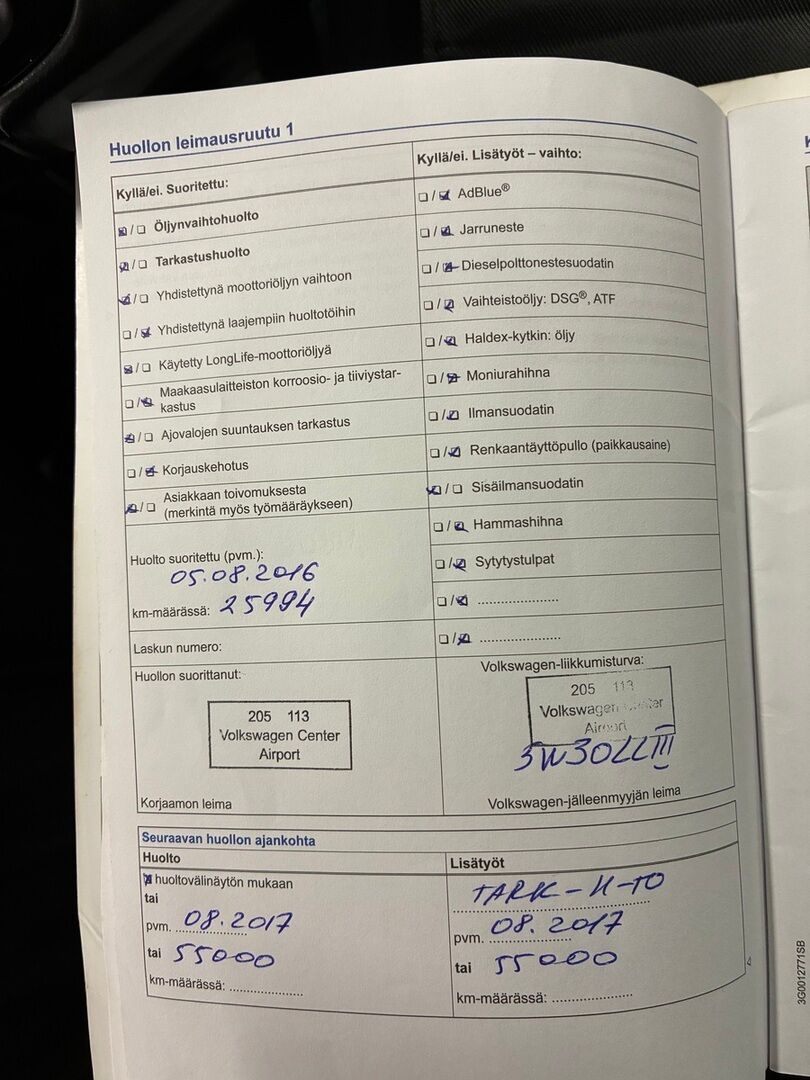 Huollon leimausruutu 1
Kyllä/ei. Suoritettu:
☒ / ☐ Öljynvaihtohuolto
☒ / ☐ Tarkastushuolto
☒ / ☐ Yhdistettynä moottoriöljyn vaihtoon
☐ / ☒ Yhdistettynä laajempiin huoltotöihin
☒ / ☐ Käytetty LongLife-moottoriöljyä
☐ / ☒ Maakaasulaitteiston korroosio- ja tiiviystar-
kastus
☒ / ☐ Ajovalojen suuntauksen tarkastus
☐ / ☒ Korjauskehotus
☒ / ☐ Asiakkaan toivomuksesta
(merkintä myös työmääräykseen)
Huolto suoritettu (pvm.):
05.08.2016
km-määrässä: 25994
Laskun numero:
Huollon suorittanut:
205 113
Volkswagen Center
Airport
Korjaamon leima
Kyllä/ei. Lisätyöt – vaihto:
☐ / ☒ AdBlue®
☐ / ☒ Jarruneste
☐ / ☒ Dieselpolttonestesuodatin
☐ / ☒ Vaihteistoöljy: DSG®, ATF
☐ / ☒ Haldex-kytkin: öljy
☐ / ☒ Moniurahihna
☐ / ☒ Ilmansuodatin
☐ / ☒ Renkaantäyttöpullo (paikkausaine)
☒ / ☐ Sisäilmansuodatin
☐ / ☒ Hammashihna
☐ / ☒ Sytytystulpat
☐ / ☒ ....................
☐ / ☒ ....................
Volkswagen-liikkumisturva:
205 113
Volkswagen Center
Airport
Volkswagen-jälleenmyyjän leima
Seuraavan huollon ajankohta
Huolto
☒ huoltovälinäytön mukaan
tai
pvm. 08.2017
tai 55000
km-määrässä: ..................
Lisätyöt
TARK-H-TO
pvm. 08.2017
tai 55000
km-määrässä: ....................
3G0012771SB